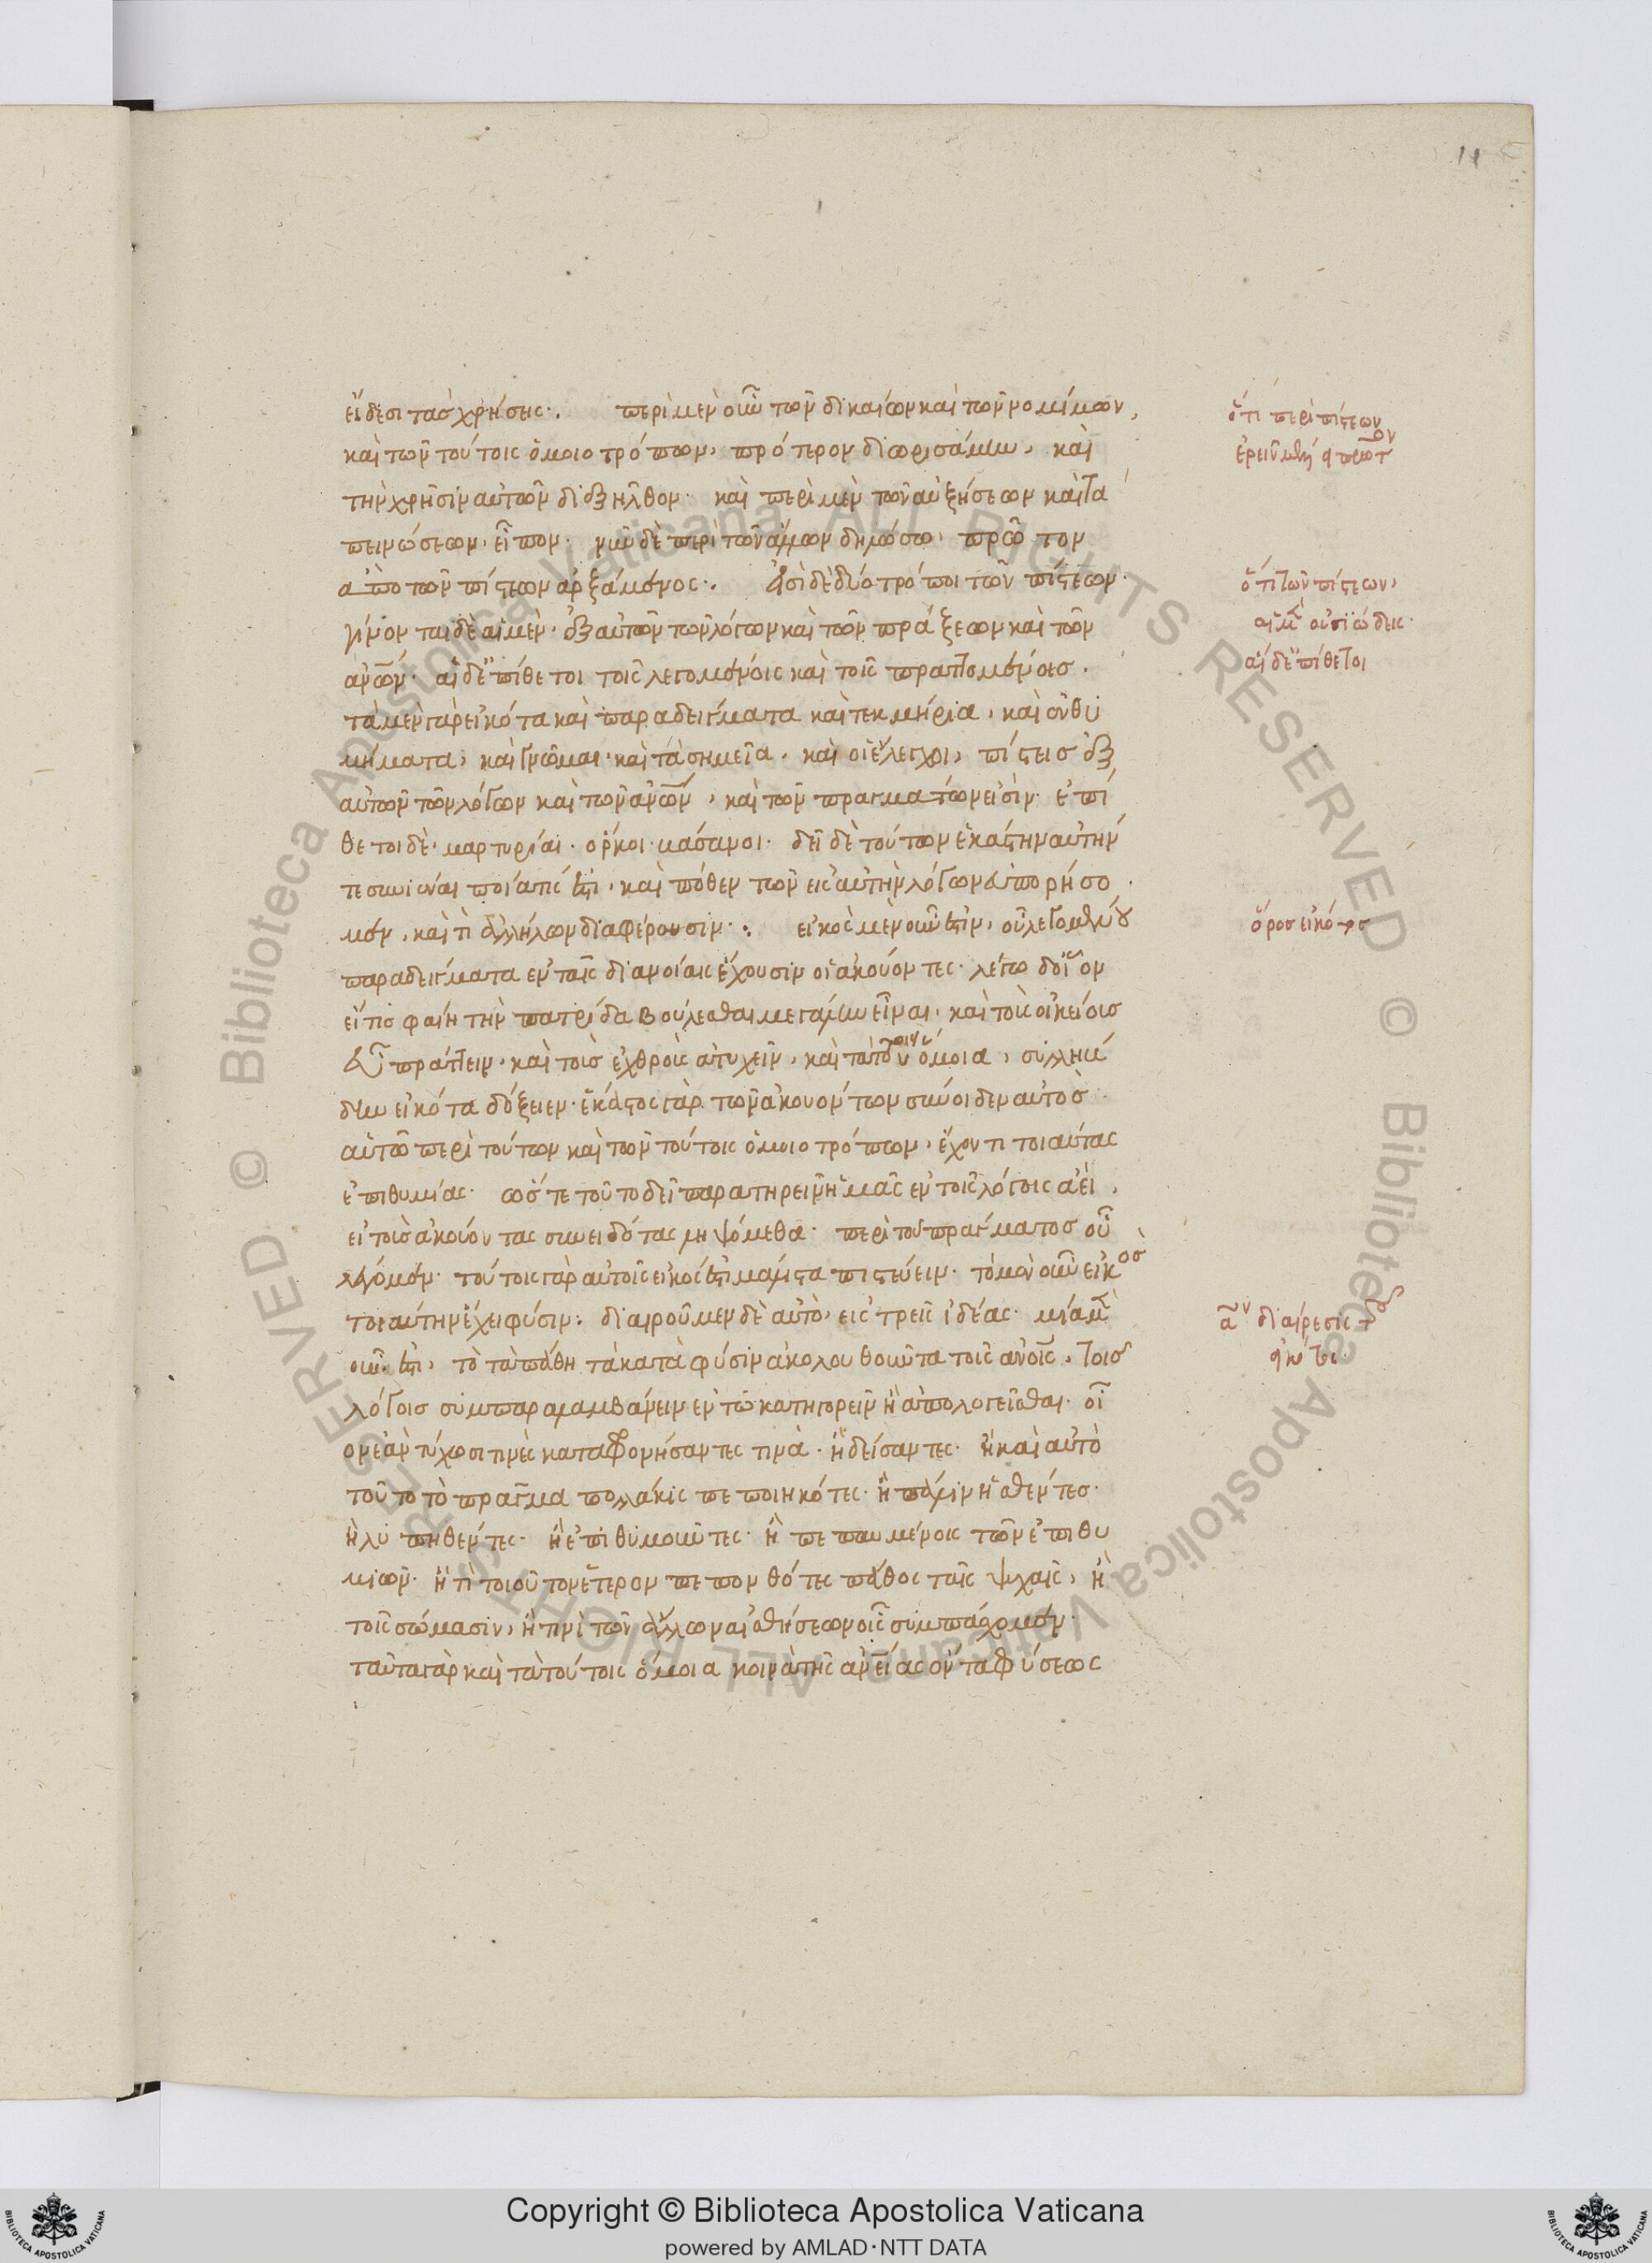 11
εἴδεσι τὰς χρήσης·. περὶ μὲν οὖν τῶν δικαίων καὶ τῶν νομίμων,
καὶ τῶν τούτοις ὁμοιοτρόπων, πρότερον διωρισάμην, καὶ
τὴν χρῆσιν αὐτῶν διεξῆλθον· καὶ περὶ μὲν τῶν αὐξήσεων καὶ τα
πεινώσεων, εἶπον· νῦν δὲ περὶ τῶν ἄλλων δηλώσω, πρῶτον
ἀπὸ τῶν πίστεων ἀρξάμενος·. εἰσὶ δὲ δύο τρόποι τῶν πίστεων·
γίνονται δὲ αἱ μὲν, ἐξ αὐτῶν τῶν λόγων καὶ τῶν πράξεων καὶ τῶν
ἀνῶν· αἱ δ' ἐπίθετοι τοῖς λεγομένοις καὶ τοῖς πραττομένοις·
τὰ μὲν γὰρ εἰκότα καὶ παραδείγματα καὶ τεκμήρια, καὶ ἐνθυ
μήματα, καὶ γνῶμαι, καὶ τὰ σημεῖα, καὶ οἱ ἔλεγχοι, πίστεις ἐξ
αὐτῶν τῶν λόγων καὶ τῶν ἀνῶν, καὶ τῶν πραγμάτων εἰσὶν· ἐπί
θετοι δὲ, μαρτυρίαι· ὅρκοι· βάσανοι· δεῖ δὲ τούτων ἑκάστην αὐτήν
τε συνιέναι ποία τίς ἐστι, καὶ πόθεν τῶν εἰς αὐτὴν λόγων εὐπορήσο
μεν, καὶ τί ἀλλήλων διαφέρουσιν·. εἰκὸς μὲν οὖν ἐστὶν, οὗ λεγομένου
παραδείγματα ἐν ταῖς διανοίαις ἔχουσιν οἱ ἀκούοντες· λέγω δ' οἷον
εἴ τις φαίη τὴν πατρίδα βούλεσθαι μεγάλην εἶναι, καὶ τοὺς οἰκείους
εὖ πράττειν, καὶ τοὺς ἐχθροὺς ἀτυχεῖν, καὶ τὰ τούτοις ὅμοια, συλλή
δην εἰκότα δόξειεν· ἕκαστος γὰρ τῶν ἀκουόντων σύνοιδεν αὐτὸς
αὑτῶ περὶ τούτων καὶ τῶν τούτοις ὁμοιοτρόπων, ἔχοντι τοιαύτας
ἐπιθυμίας· ὥστε τοῦτο δεῖ παρατηρεῖν ἡμᾶς ἐν τοῖς λόγοις ἀεὶ,
εἰ τοὺς ἀκούοντας συνειδότας ληψόμεθα· περὶ τοῦ πράγματος οὗ
λέγομεν· τούτοις γὰρ αὐτοῖς εἰκός ἐστι μάλιστα πιστεύειν· τὸ μὲν οὖν εἰκὸς
τοιαύτην ἔχει φύσιν: διαιροῦμεν δὲ αὐτὸ, εἰς τρεῖς ἰδέας· μία μὲν
οὖν ἐστι, τὸ τὰ πάθη τὰ κατὰ φύσιν ἀκολουθοῦντα τοῖς ἀνοῖς, τοῖς
λόγοις συμπαραλαμβάνειν ἐν τῶ κατηγορεῖν ἢ ἀπολογεῖσθαι· οἷ
ον ἐὰν τύχωσι τινὲς καταφρονήσαντές τινα· ἢ δείσαντες· ἢ καὶ αὐτὸ
τοῦτο τὸ πρᾶγμα πολλάκις πεποιηκότες· ἢ πάλιν ἡσθέντες·
ἢ λυπηθέντες· ἢ ἐπιθυμοῦντες· ἢ πεπαυμένοις τῶν ἐπιθυ
μιῶν· ἤ τι τοιοῦτον ἕτερον πεπονθότες πάθος ταῖς ψυχαῖς, ἢ
τοῖς σώμασιν, ἤ τινι τῶν ἄλλων αἰσθήσεων οἷς συμπάσχομεν·
ταῦτα γὰρ καὶ τὰ τούτοις ὅμοια κοινὰ τῆς ἀνείας ὄντα φύσεως
ὅτι περὶ πίστεων
ὅτι τῶν πίστεων,
αἱ μὲν οὐσιώδεις·
αἱ δ' ἐπίθετοι
ὅρος εἰκότος
διαίρεσις τοῦ
εἰκότος·
Copyright © Biblioteca Apostolica Vaticana
powered by AMLAD·NTT DATA